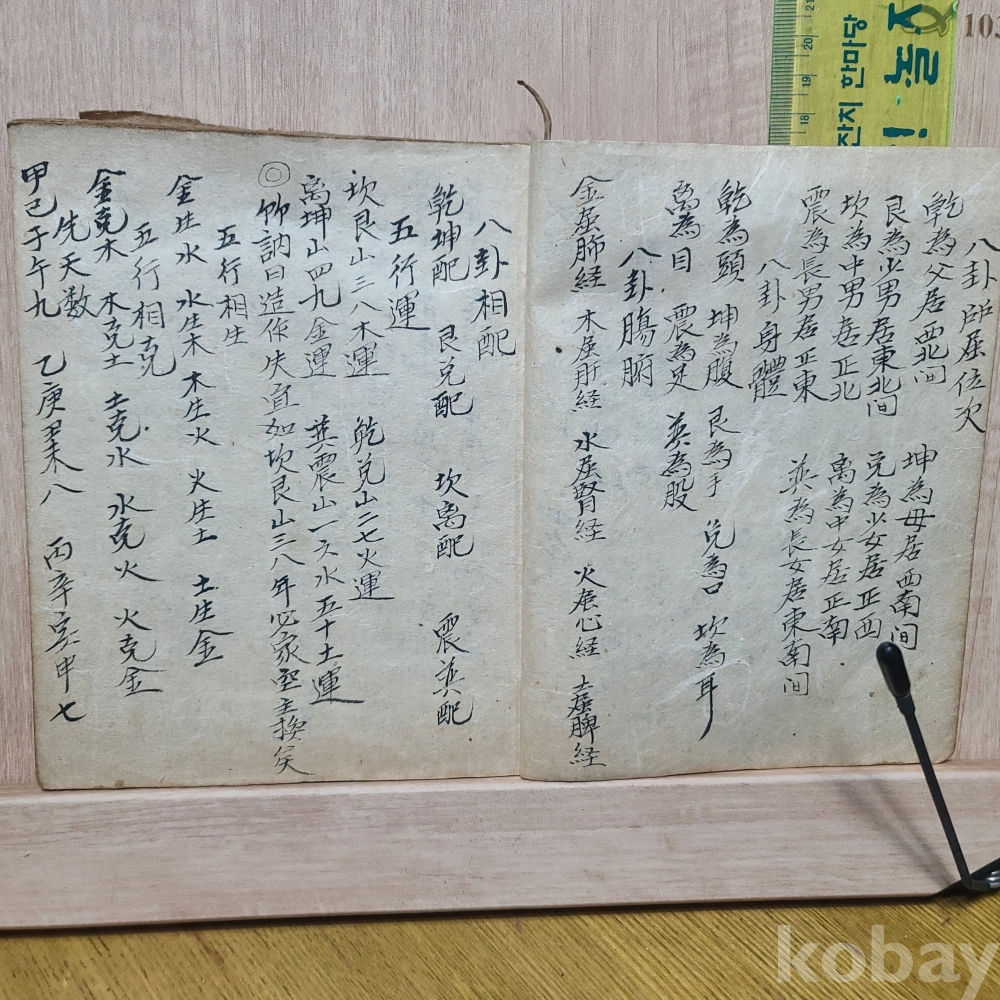 八卦所屬位次
乾為父居西北间 坤為母居西南间
艮為少男居東北间 兑為少女居正西
坎為中男居正北 离為中女居正南
震為長男居正東 巽為長女居東南间
八卦身體
乾為頭 坤為腹 艮為手 兑為口 坎為耳
离為目 震為足 巽為股
八卦腸腑
金屬肺経 木屬肝経 水屬腎経 火屬心経 土屬脾経
八卦相配
乾坤配 艮兑配 坎离配 震巽配
五行運
坎艮山三八木運 乾兑山二七火運
离坤山四九金運 巽震山一六水五十土運
訥曰造作失宜如坎艮山三八年必家宅主換矣
五行相生
金生水 水生木 木生火 火生土 土生金
五行相克
金克木 木克土 土克水 水克火 火克金
先天数
甲己子午九 乙庚丑未八 丙辛寅申七
잔치 한마당
! 놀
18 19 20 21
103
kobay